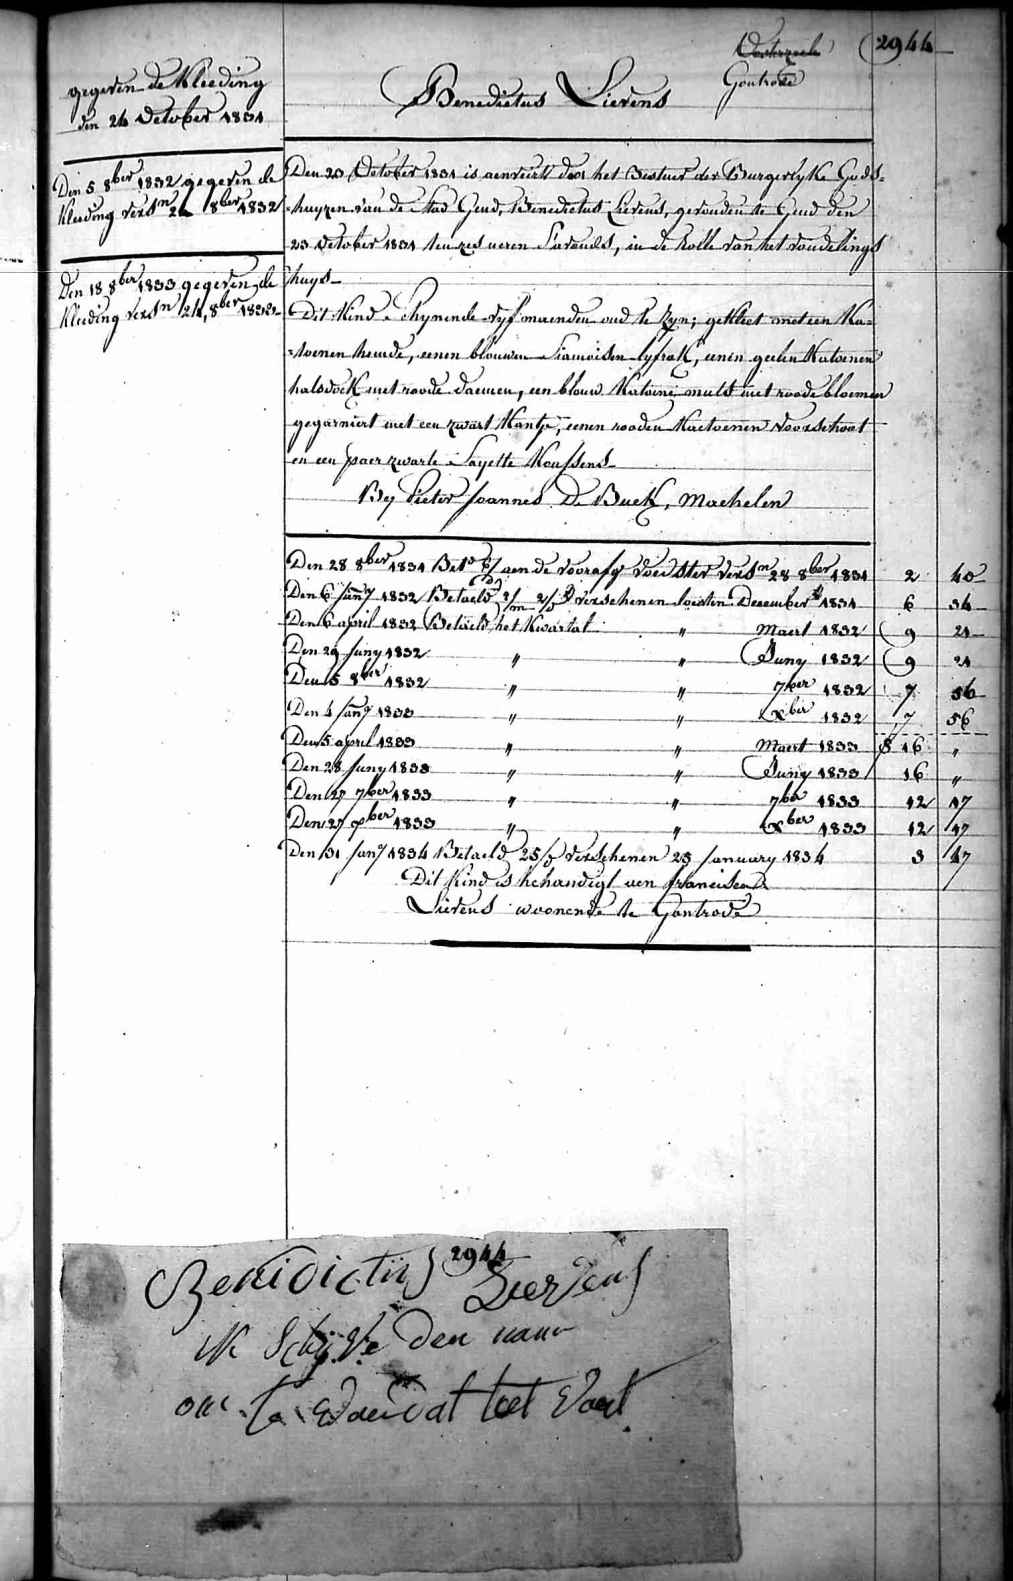 Oosterzeele
2944
Gontrode
Benedictus Lievens
gegeven de Kleeding
den 24 October 1831
Den 5 8ber 1832 gegeven de
Kleeding versn 24 8ber 1832
Den 18 8ber 1833 gegeven de
Kleeding versn 24, 8ber 1833
Den 23 October 1831 is aenveird door het Bestuer der Burgerlyke Gods=
=huyzen van de Stad Gend, Benedictus Lievens, gevonden te Gend den
23 October 1831 ten zes ueren s'avonds, in de Rolle van het vondelings
huys
Dit Kind schynende vyf maenden oud te zyn; gekleet met een Ka=
=toenen hemde, eenen blouwen Siamoisen lyfrok, eenen geelen Katoenen
halsdoek met roode daemen, een blouw Katoene muts met roode bloemen
gegarniert met een zwart Kantje, eenen rooden Kaetoenen Voorschoot
en een paer zwarte Sayette Koussens
By Pieter Joannes De Buck, Machelen
Den 28 8ber 1831 Bet aen de voorafg voedster versn 28 8ber 1831 2 40
Den 6 Jany 1832 Betaeld 2/m 2/d verschenen loesten December 1831 6 34
Den 6 april 1832 Betaeld het Kwartal " Maert 1832 9 21
Den 29 Juny 1832 " " Juny 1832 9 21
Den 5 8ber 1832 " " 7ber 1832 7 56
Den 4 Jany 1833 " " Xber 1832 7 56
Den 5 april 1833 " " Maert 1833 16 "
Den 28 Juny 1833 " " Juny 1833 16 "
Den 27 7ber 1833 " " 7ber 1833 12 47
Den 27 Xber 1833 " " Xber 1833 12 47
Den 31 Jany 1834 Betaeld 25/d verschenen 25 January 1834 3 47
Dit Kind is behandigt aen franciscus
Lievens woonende te Gontrode
2944
Benidictus Lievens
ik schyve den naem
om te dat het